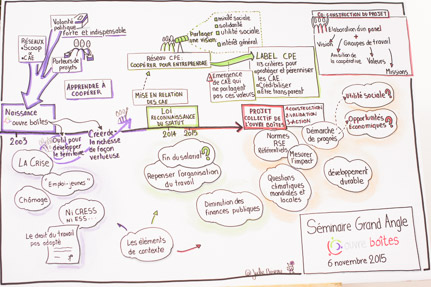 Volonté
politique
forte et indispensable
RÉSEAUX
Scoop
CAE
Porteurs de
projets
APPRENDRE À
COOPÉRER
mixité sociale
solidarité
utilité sociale
intérêt général
Partager
une vision
RÉSEAU CPE
COOPÉRER POUR ENTREPRENDRE
MISE EN RELATION
DES CAE
Émergence
de CAE qui
ne partagent
pas ces valeurs
LABEL CPE
critères pour
protéger et pérenniser
les CAE
Crédibiliser
être transparent
CO-CONSTRUCTION DU PROJET
Élaboration d'un panel
Vision
Groupes de travail
Animation de la
coopérative
Valeurs
Missions
Naissance
ouvre boîtes
2003
Outil pour
développer
le territoire
Créer de
la richesse
de façon
vertueuse
LOI
RECONNAISSANCE
DU STATUT
2014 2015
PROJET
COLLECTIF DE
L'OUVRE BOÎTES
CONSTRUCTION
VALIDATION
ACTION
Utilité sociale
Opportunités
économiques
Démarche de
progrès
Normes
RSE
Référentiels
Mesurer
l'impact
développement
durable
Questions
climatiques
mondiales et
locales
La Crise
"Emploi-jeunes"
Chômage
Ni CRESS
Ni ESS...
Le droit du travail
pas adapté
Fin du salariat ?
Repenser l'organisation
du travail
Diminution des
finances publiques
Les éléments
de contexte
Séminaire Grand Angle
ouvre boîtes
6 novembre 2015